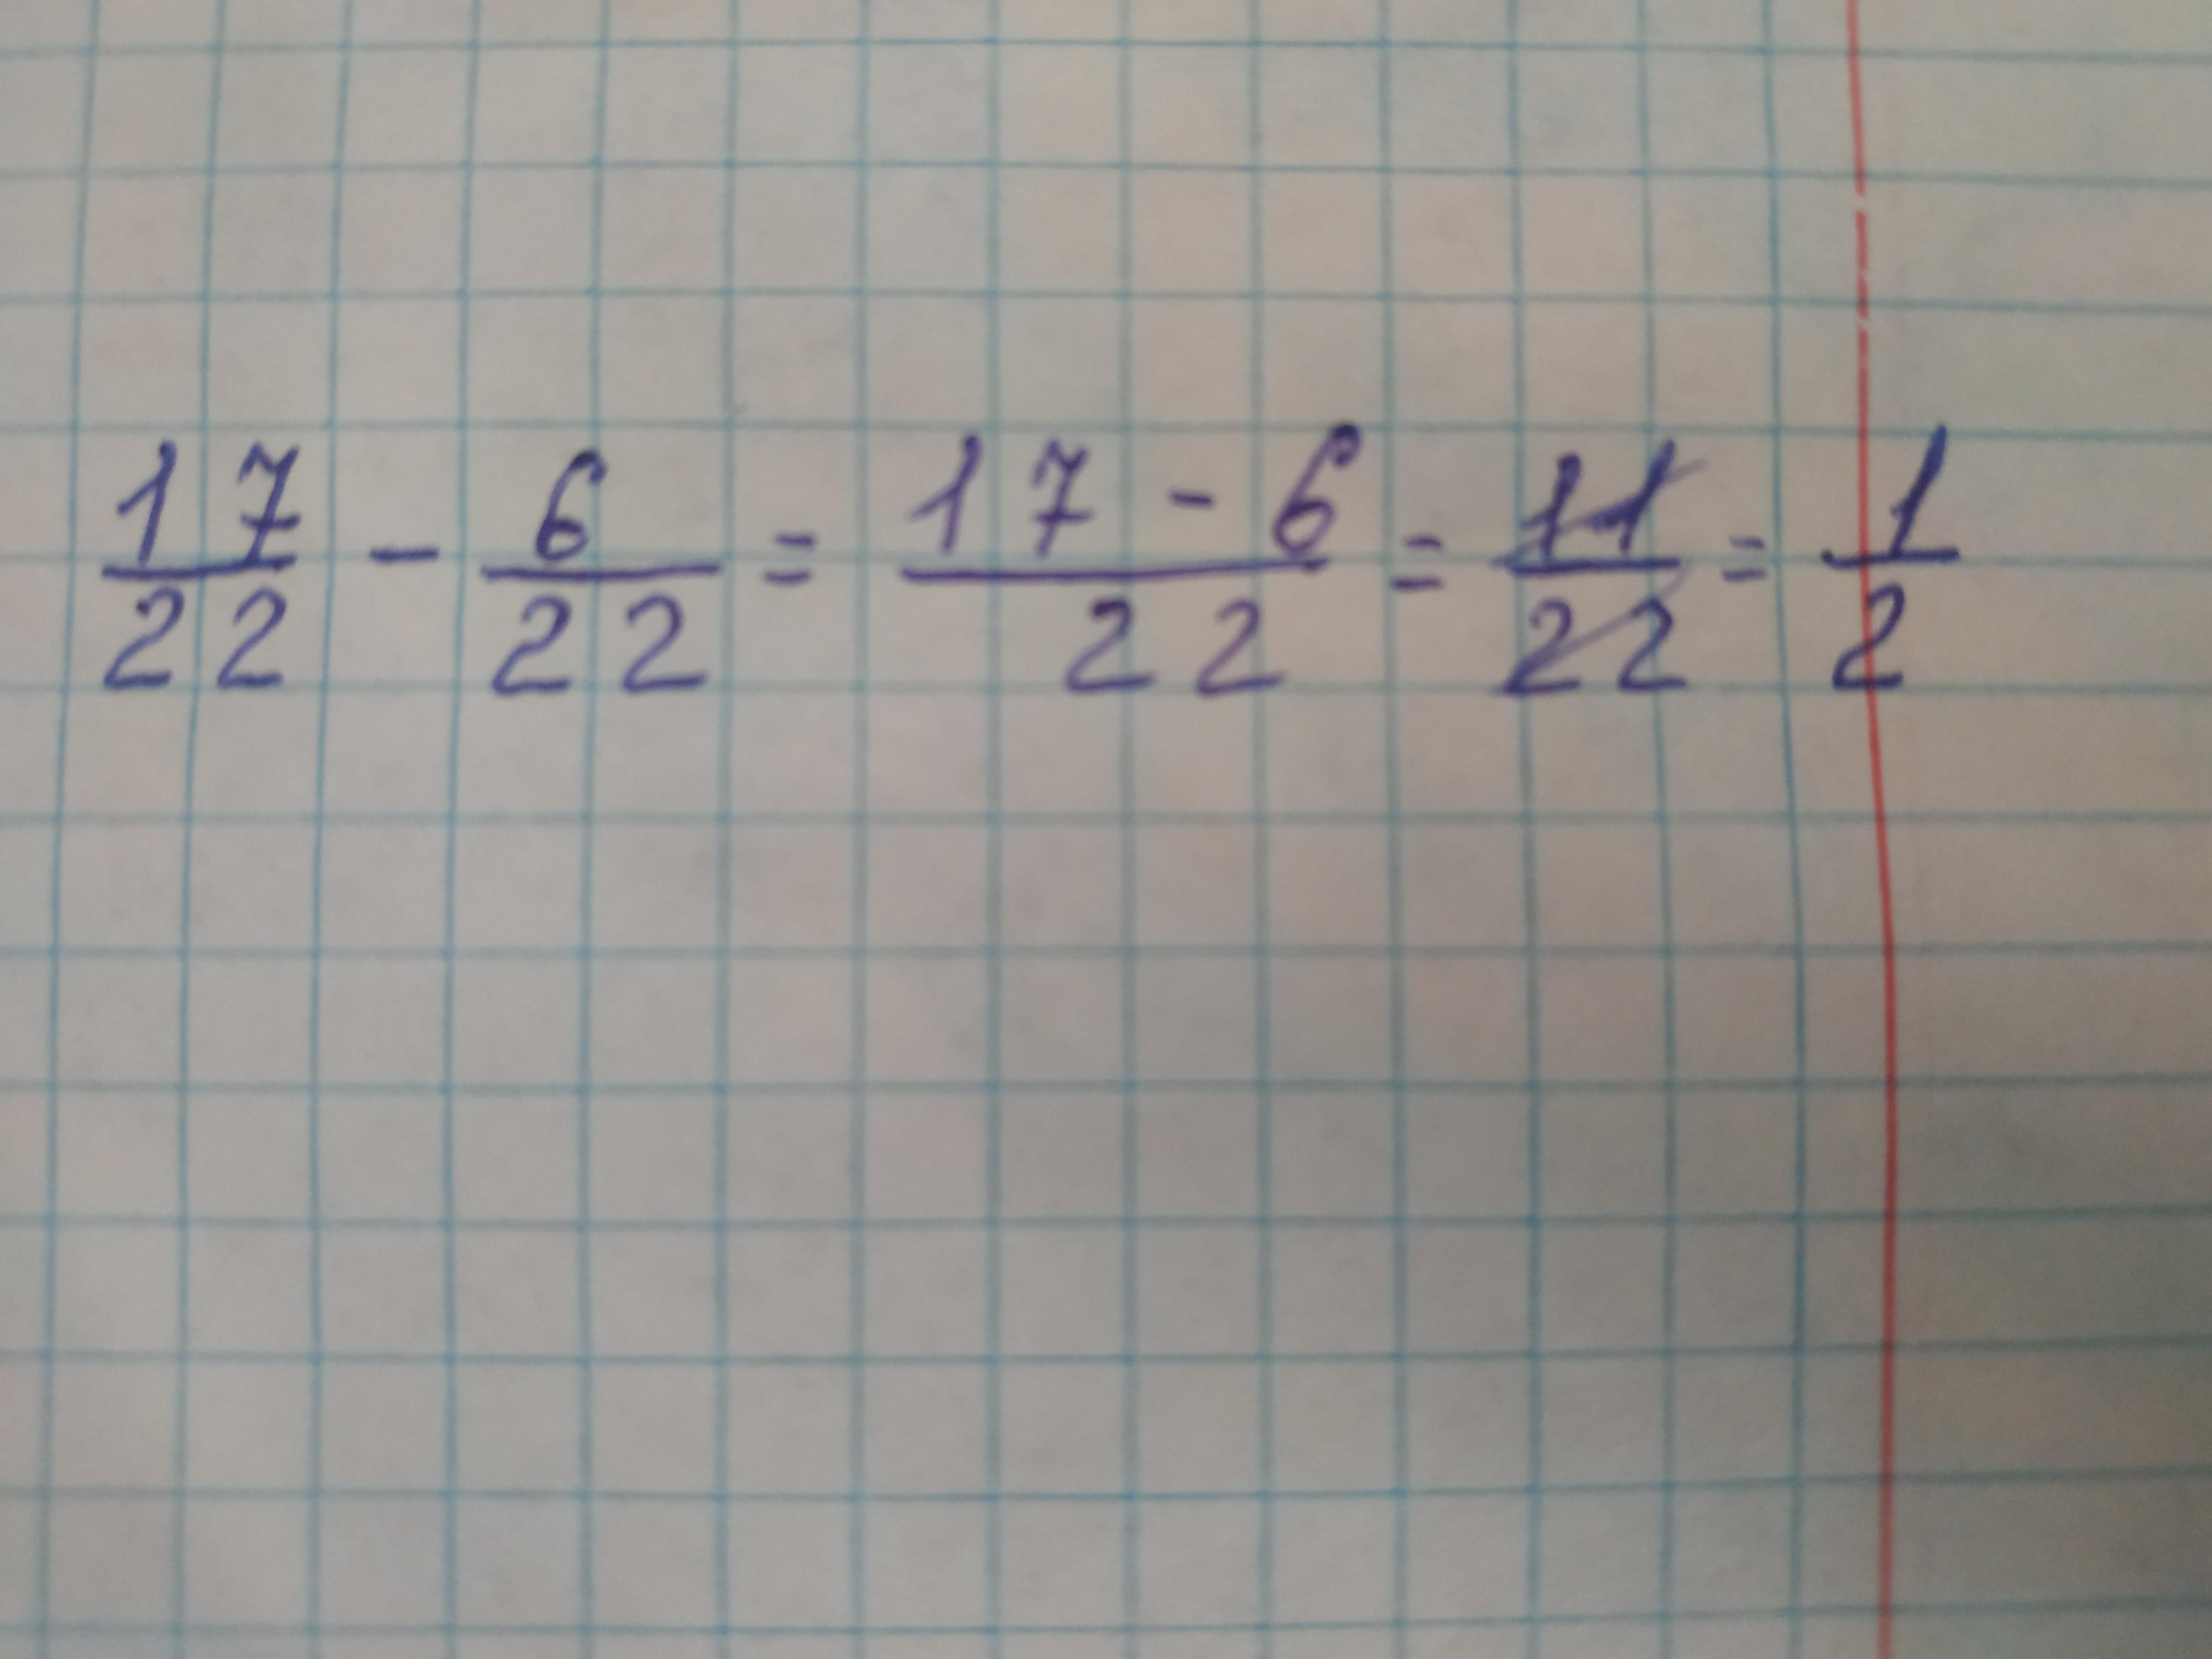 17/22 - 6/22 = (17 - 6)/22 = 11/22 = 1/2